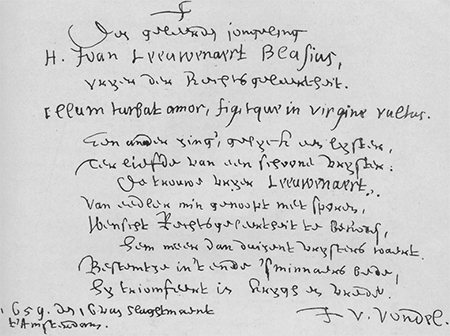 Den geleerden jongeling
H. Ioan Leeuwenaert Blasius,
vryer der Rechtsgeleertheit.
Illum turbat amor, figitque in virgine vultus.
Een ander zing', gelyck een lyster,
Ter liefde van een schoone vryster:
De trouwe vryer Leeuwenaert,
Van edler min genoopt met sporen,
Verkiest Rechtsgeleertheit te
Hem meer dan duizent vrysters waert.
in't ende 's minnaers bede,
Hy triomfeert in krygh en vrede.
1659. den 16 van Slaghtmaent
t'Amsterdam.
J. V. Vondel.